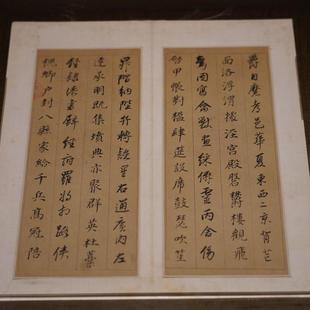 爵自縻都邑華夏東西二京背芒
面洛浮渭據涇宮殿磐鬱樓觀飛
驚圖寫禽獸畫綵僊靈丙舍傍
啓甲帳對楹肆筵設席鼓瑟吹笙
昇階納陛弁轉疑星右通廣内左
達承明既集墳典亦聚群英杜藁
鍾隸漆書壁經府羅將相路俠
槐卿户封八縣家給千兵高冠陪